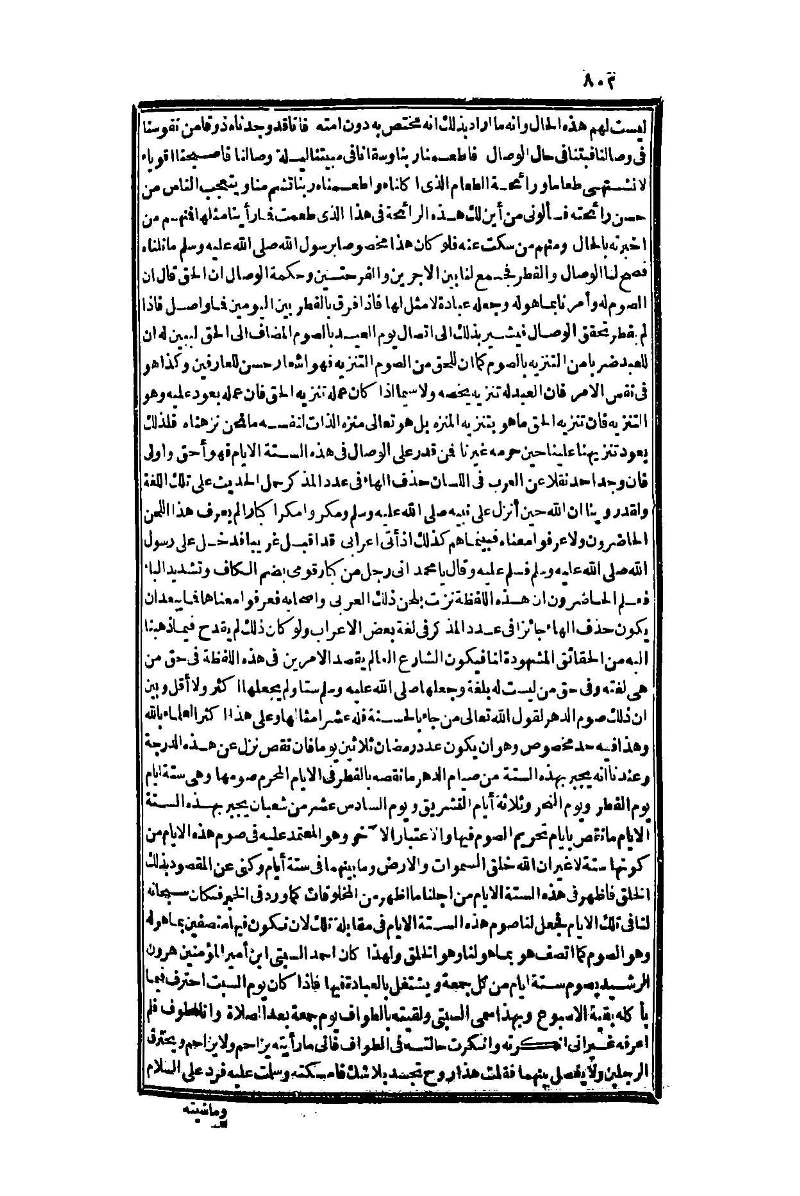 ٨٠٣
ليست لهم هذه الحال وانه ما اراد بذلك انه مختص به دون امته فاناقد وجدناه ذوقا من نفوسنا
فى وصالنا فبتنا فى حال الوصال فاطعمنا ربنا وسقانا فى مبيتنا ليلة وصالنا فاصبحنا اقوياء
لا نشتهى طعاما ورائحة الطعام الذى اكلناه واطعمناه ربنا تشم منا ويتعجب الناس من
حسن رائحته فسألونى من أين لك هذه الرائحة فى هذا الذى طعمت فما رأينا مثلها فنهم من
اخبرته بالحال ومنهم من سكت عنه فلو كان هذا مخصوصا برسول الله صلى الله عليه وسلم ما نلناه
فصح لنا الوصال والفطر فجمع لنا بين الاجرين والفرحتين وحكمة الوصال ان الحق قال ان
الصوم له وأمرنا بما هو له وجعله عبادة لا مثل لها فاذا فرق بالفطر بين اليومين فما واصل فاذا
لم يفطر تحقق الوصال فيشير بذلك الى اتصال يوم العبد بالصوم المضاف الى الحق ليبين له ان
للعبد ضربا من التنزيه بالصوم كما ان للحق من الصوم التنزيه فهو اشعار حسن للعارفين وكذا هو
فى نفس الامر فان العبد له تنزيه يخصه ولا سيما اذا كان عمله تنزيه الحق فان عمله يعود عليه وهو
التنزيه فان تنزيه الحق ما هو بتنزيه المنزه بل هو تعالى منزه الذات لنفسه ما نحن نزهناه فلذلك
يعود تنزيهنا علينا حين حرمه غيرنا فمن قدر على الوصال فى هذه الستة الايام فهو أحق واولى
فان وجد احد نقلا عن العرب فى اللسان حذف الهاء فى عدد المذكر حمل الحديث على تلك اللغة
ولقد روينا ان الله حين أنزل على نبيه صلى الله عليه وسلم ومكروا مكرا كبارا لم يعرف هذا اللحن
الحاضرون ولا عرفوا معناه فبينما هم كذلك اذ أتى اعرابى قد اقبل غريبا فدخل على رسول
الله صلى الله عليه وسلم فسلم عليه وقال يا محمد انى رجل من كبار قومى بضم الكاف وتشديد الباء
فعلم الحاضرون ان هذه اللفظة نزلت بلحن ذلك العربى واصحابه فعرفوا معناها فما يبعد ان
يكون حذف الهاء جائزا فى عدد المذكر فى لغة بعض الاعراب ولو كان ذلك لم يقدح فيما ذهبنا
اليه من الحقائق المشهودة لنا فيكون الشارع العالم يقصد الامرين فى هذه اللفظة فى حق من
هى لغته وفى حق من ليست له بلغة وجعلها صلى الله عليه وسلم ستا ولم يجعلها اكثر ولا أقل وبين
ان ذلك صوم الدهر لقول الله تعالى من جاء بالحسنة فله عشر امثالها وعلى هذا اكثر العلماء بالله
وهذا فيه حد مخصوص وهو ان يكون عدد رمضان ثلاثين يوما فان نقص نزل عن هذه الدرجة
وعندنا انه يجبر بهذه الستة من صيام الدهر ما نقصه بالفطر فى الايام المحرم صومها وهى ستة ايام
يوم الفطر ويوم النحر وثلاثة أيام التشريق ويوم السادس عشر من شعبان يجبر بهذه الستة
الايام ما نقص بايام تحريم الصوم فيها والاعتبار الآخر وهو المعتمد عليه فى صوم هذه الايام من
كونها ستة لا غير ان الله خلق السموات والارض وما بينهما فى ستة أيام وكنى عن المقصود بذلك
الخلق فاظهر فى هذه الستة الايام من اجلنا ما اظهر من المخلوقات كما ورد فى الخبر فكان سبحانه
لنا فى تلك الايام فجعل لنا صوم هذه الستة الايام فى مقابلة تلك لان نكون فيها متصفين بما هو له
وهو الصوم كما اتصف هو بما هو لنا وهو الخلق ولهذا كان احمد السبتى ابن أمير المؤمنين هرون
الرشيد يصوم ستة ايام من كل جمعة ويشتغل بالعبادة فيها فاذا كان يوم السبت احترف فيما
يأكله بقية الاسبوع وبهذا سمى السبتى ولقيته بالطواف يوم جمعة بعد الصلاة وانا اطوف فلم
اعرفه غير انى انكرته وانكرت حالته فى الطواف فانى ما رأيته يزاحم ولا يزاحم ويخترق
الرجلين ولا يفصل بينهما فقلت هذا روح تجسد بلا شك فامسكته وسلمت عليه فرد على السلام
وماشيته